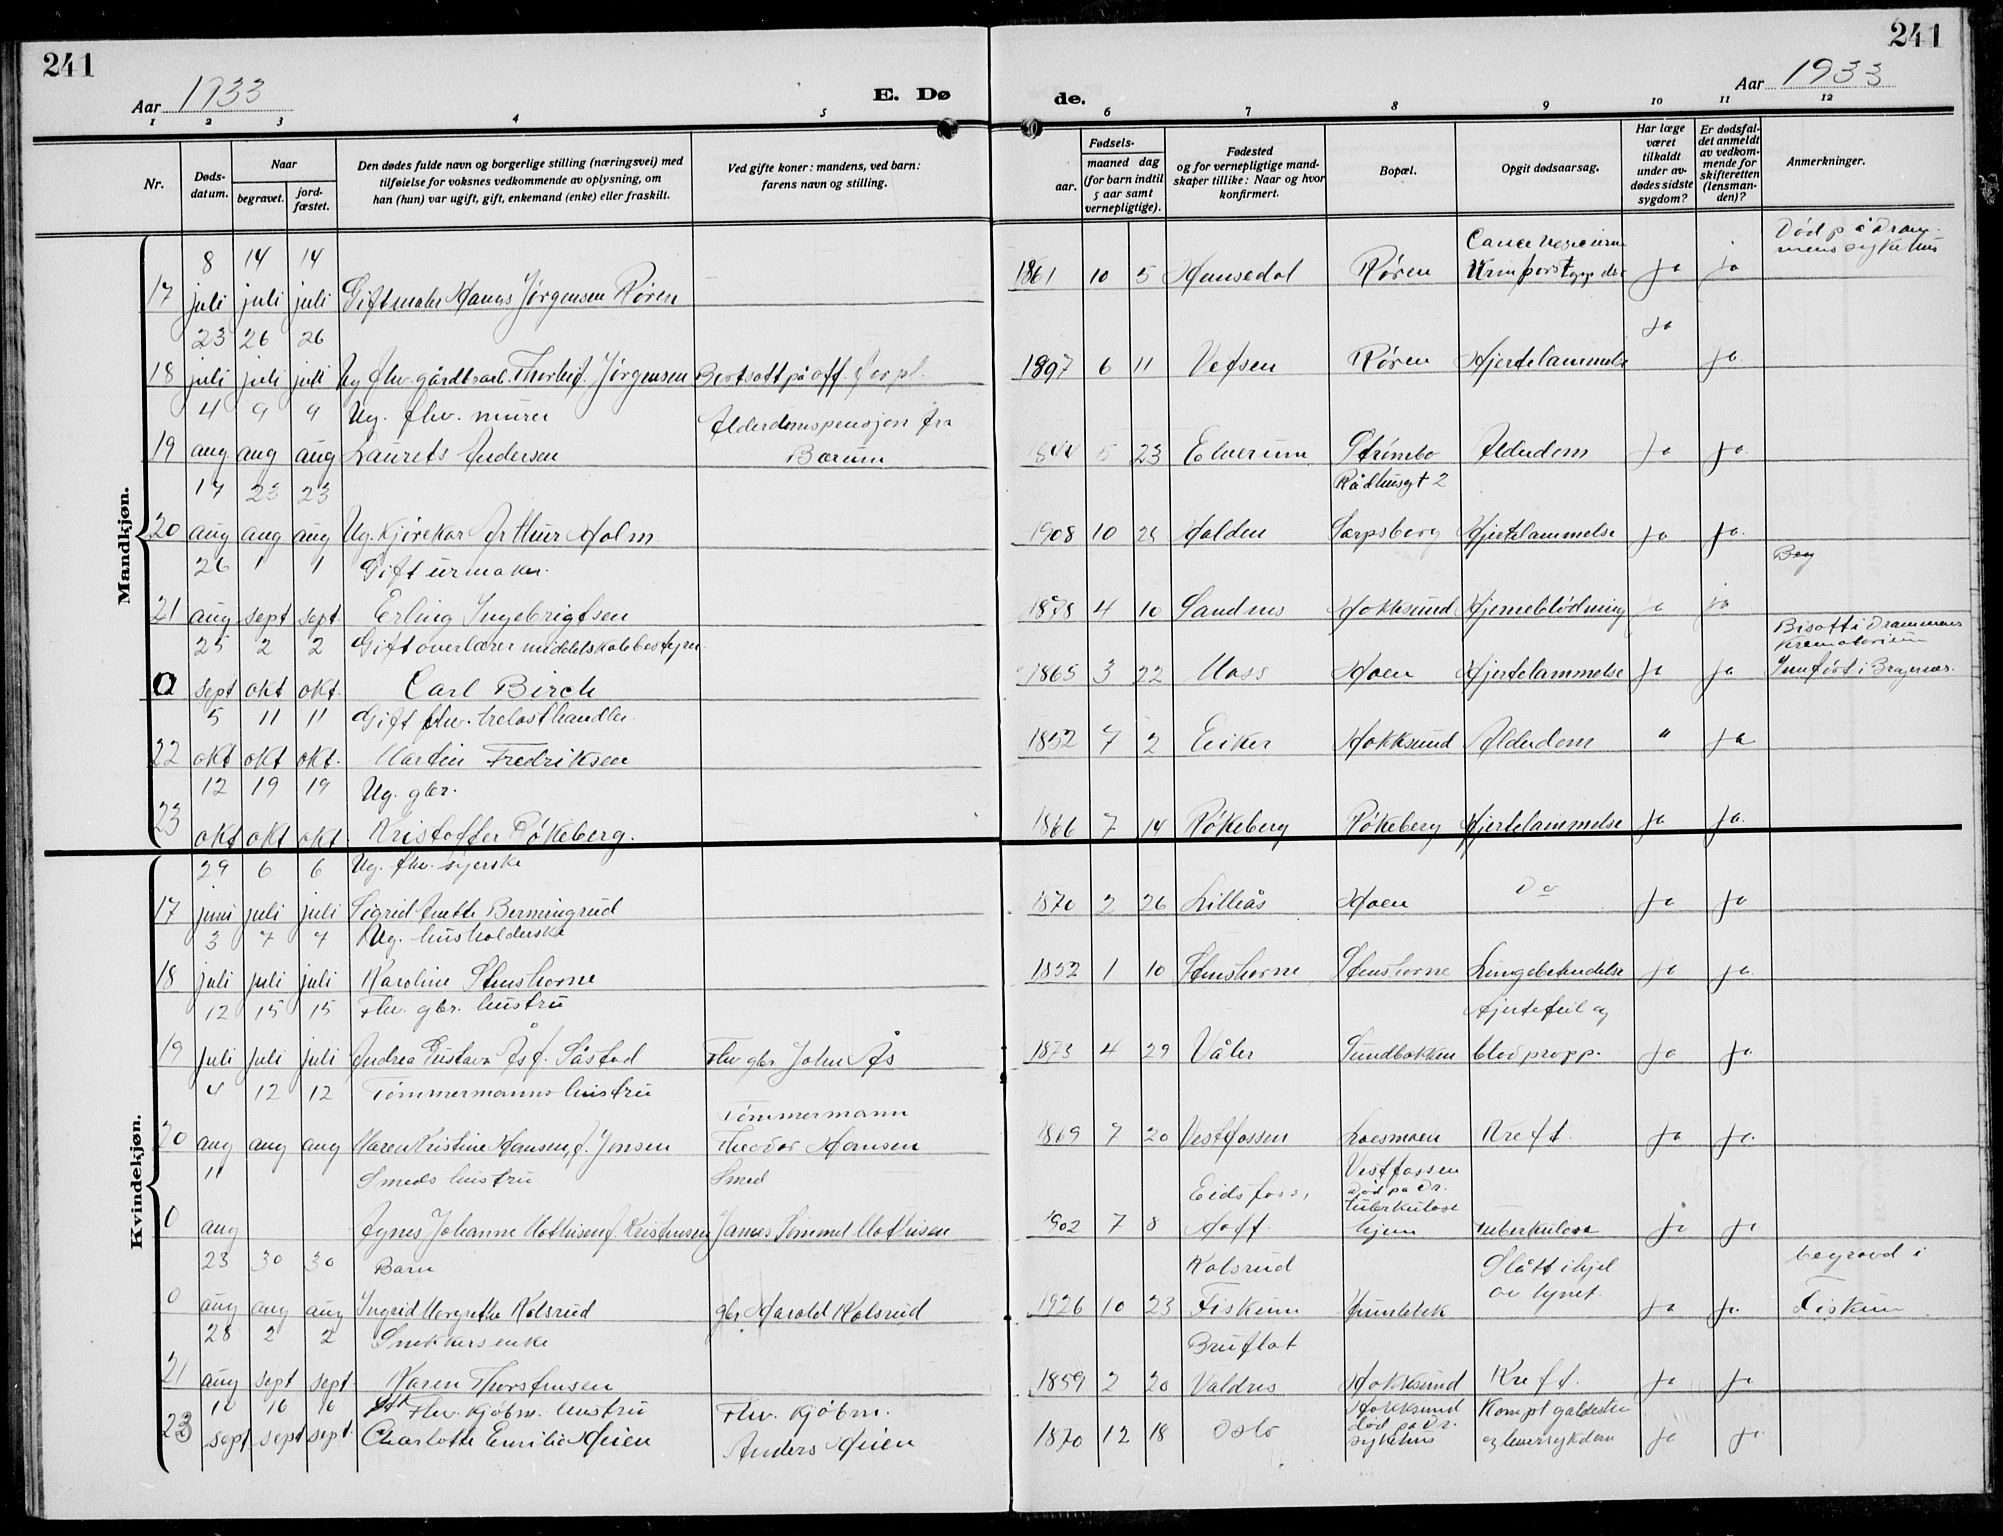 241
241
Aar 1933
E. Dø
de.
Aar 1933
1 2 3 4 5 6 7 8 9 10 11 12
Nr.
Døds-
datum.
Naar
begravet.
jord-
fæstet.
Den dødes fulde navn og borgerlige stilling (næringsvei) med
tilføielse for voksnes vedkommende av oplysning, om
han (hun) var ugift, gift, enkemand (enke) eller fraskilt.
Ved gifte koner: mandens, ved barn:
farens navn og stilling.
Fødsels-
aar.
maaned dag
(for barn indtil
5 aar samt
vernepligtige).
Fødested
og for vernepligtige mand-
skaper tillike: Naar og hvor
konfirmert.
Bopæl.
Opgit dødsaarsag.
Har læge
været
tilkaldt
under av-
dødes sidste
sygdom?
Er dødsfal-
det anmeldt
av vedkom-
mende for
skifteretten
(lensman-
den)?
Anmerkninger.
Mandkjøn.
8 14 14
Død på Dram-
mens sykehus
17 juli juli juli Jørgensen Røren 1861 10 5 Hemsedal Røren ja ja
23 26 26 ja
18 juli juli juli Ug fhv. gårdbrarb. Thorleif Jørgensen Bortsatt på off. forpl. 1897 6 11 Vefsen Røren Hjertelammelse ja
4 9 9 Ug. fhv. murer Alderdomspensjon fra
19 aug aug aug Laurets Andersen Bærum 1844 5 23 Elverum Strømbo Alderdom ja ja
17 23 23 Rådhusgt 2
20 aug aug aug Ug. Kjørekar Arthur Holm 1908 10 Halden Sarpsborg Hjertelammelse ja ja
26 1 1 Gift urmaker. Beg
21 aug sept sept. Erling Ingebrigtsen 1878 4 10 Sandnes Hokksund Hjerneblødning ja ja
25 2 2 Gift overlærer middelskolebestyrer Bisatt i Drammens
Krematorium
0 sept okt okt. Carl Birch 1865 3 22 Moss Hoen Hjertelammelse ja ja Innført i Bragernes.
5 11 11 Gift fhv. trelasthandler
22 okt okt okt. Martin Fredriksen 1852 7 2 Eiker Hokksund Alderdom " ja
12 19 19 Ug. gbr.
23 okt okt okt. Kristoffer Røkeberg. 1866 7 14 Røkeberg Røkeberg Hjertelammelse ja ja
Kvindekjøn.
29 6 6 Ug. fhv. syerske
17 juni juli juli Sigrid Anette Bermingrud 1870 2 26 Lilleås Hoen Do ja ja
3 7 7 Ug. husholderske
18 juli juli juli Karoline Stenshorne 1852 1 10 Stenshorne Stenshorne Lungebetendelse ja ja
12 15 15 Fhv. gbr. hustru Hjertefeil og
19 juli juli juli Andrea Gustava Ås f. Såstad Fhv gbr John Ås 1873 4 29 Våler Sundbakken blodpropp. ja ja
4 12 12 Tømmermanns hustru Tømmermann
20 aug aug aug Maren Kristine Hansen f. Jonsen Theodor Hansen 1869 7 20 Vestfossen Loesmoen Kreft. ja ja
11 Smeds hustru Smed Eidsfoss, Vestfossen
død på Dr.
tuberkulose
0 aug Agnes Johanne Mathisen f. Kristensen Mathisen 1902 7 8 Hoff hjem tuberkulose ja ja
23 30 30 Barn Kolsrud Slått ihjel begravd i
0 aug aug aug Ingrid Margrethe Kolsrud gbr Harald Kolsrud 1926 10 23 Fiskum av lynet. ja ja Fiskum
28 2 2 Snekkersenke Bruflat
21 aug sept sept. Karen Thorstensen 1859 2 20 Valdres Hokksund Kreft. ja ja
10 16 16 Fhv. kjøbm. hustru Fhv. kjøbm. Hokksund Kompl galdesten
23 sept sept sept. Charlotte Emilie Heien Anders Heien 1870 12 18 Oslo død på Dr. sykehus og leversykdom ja ja